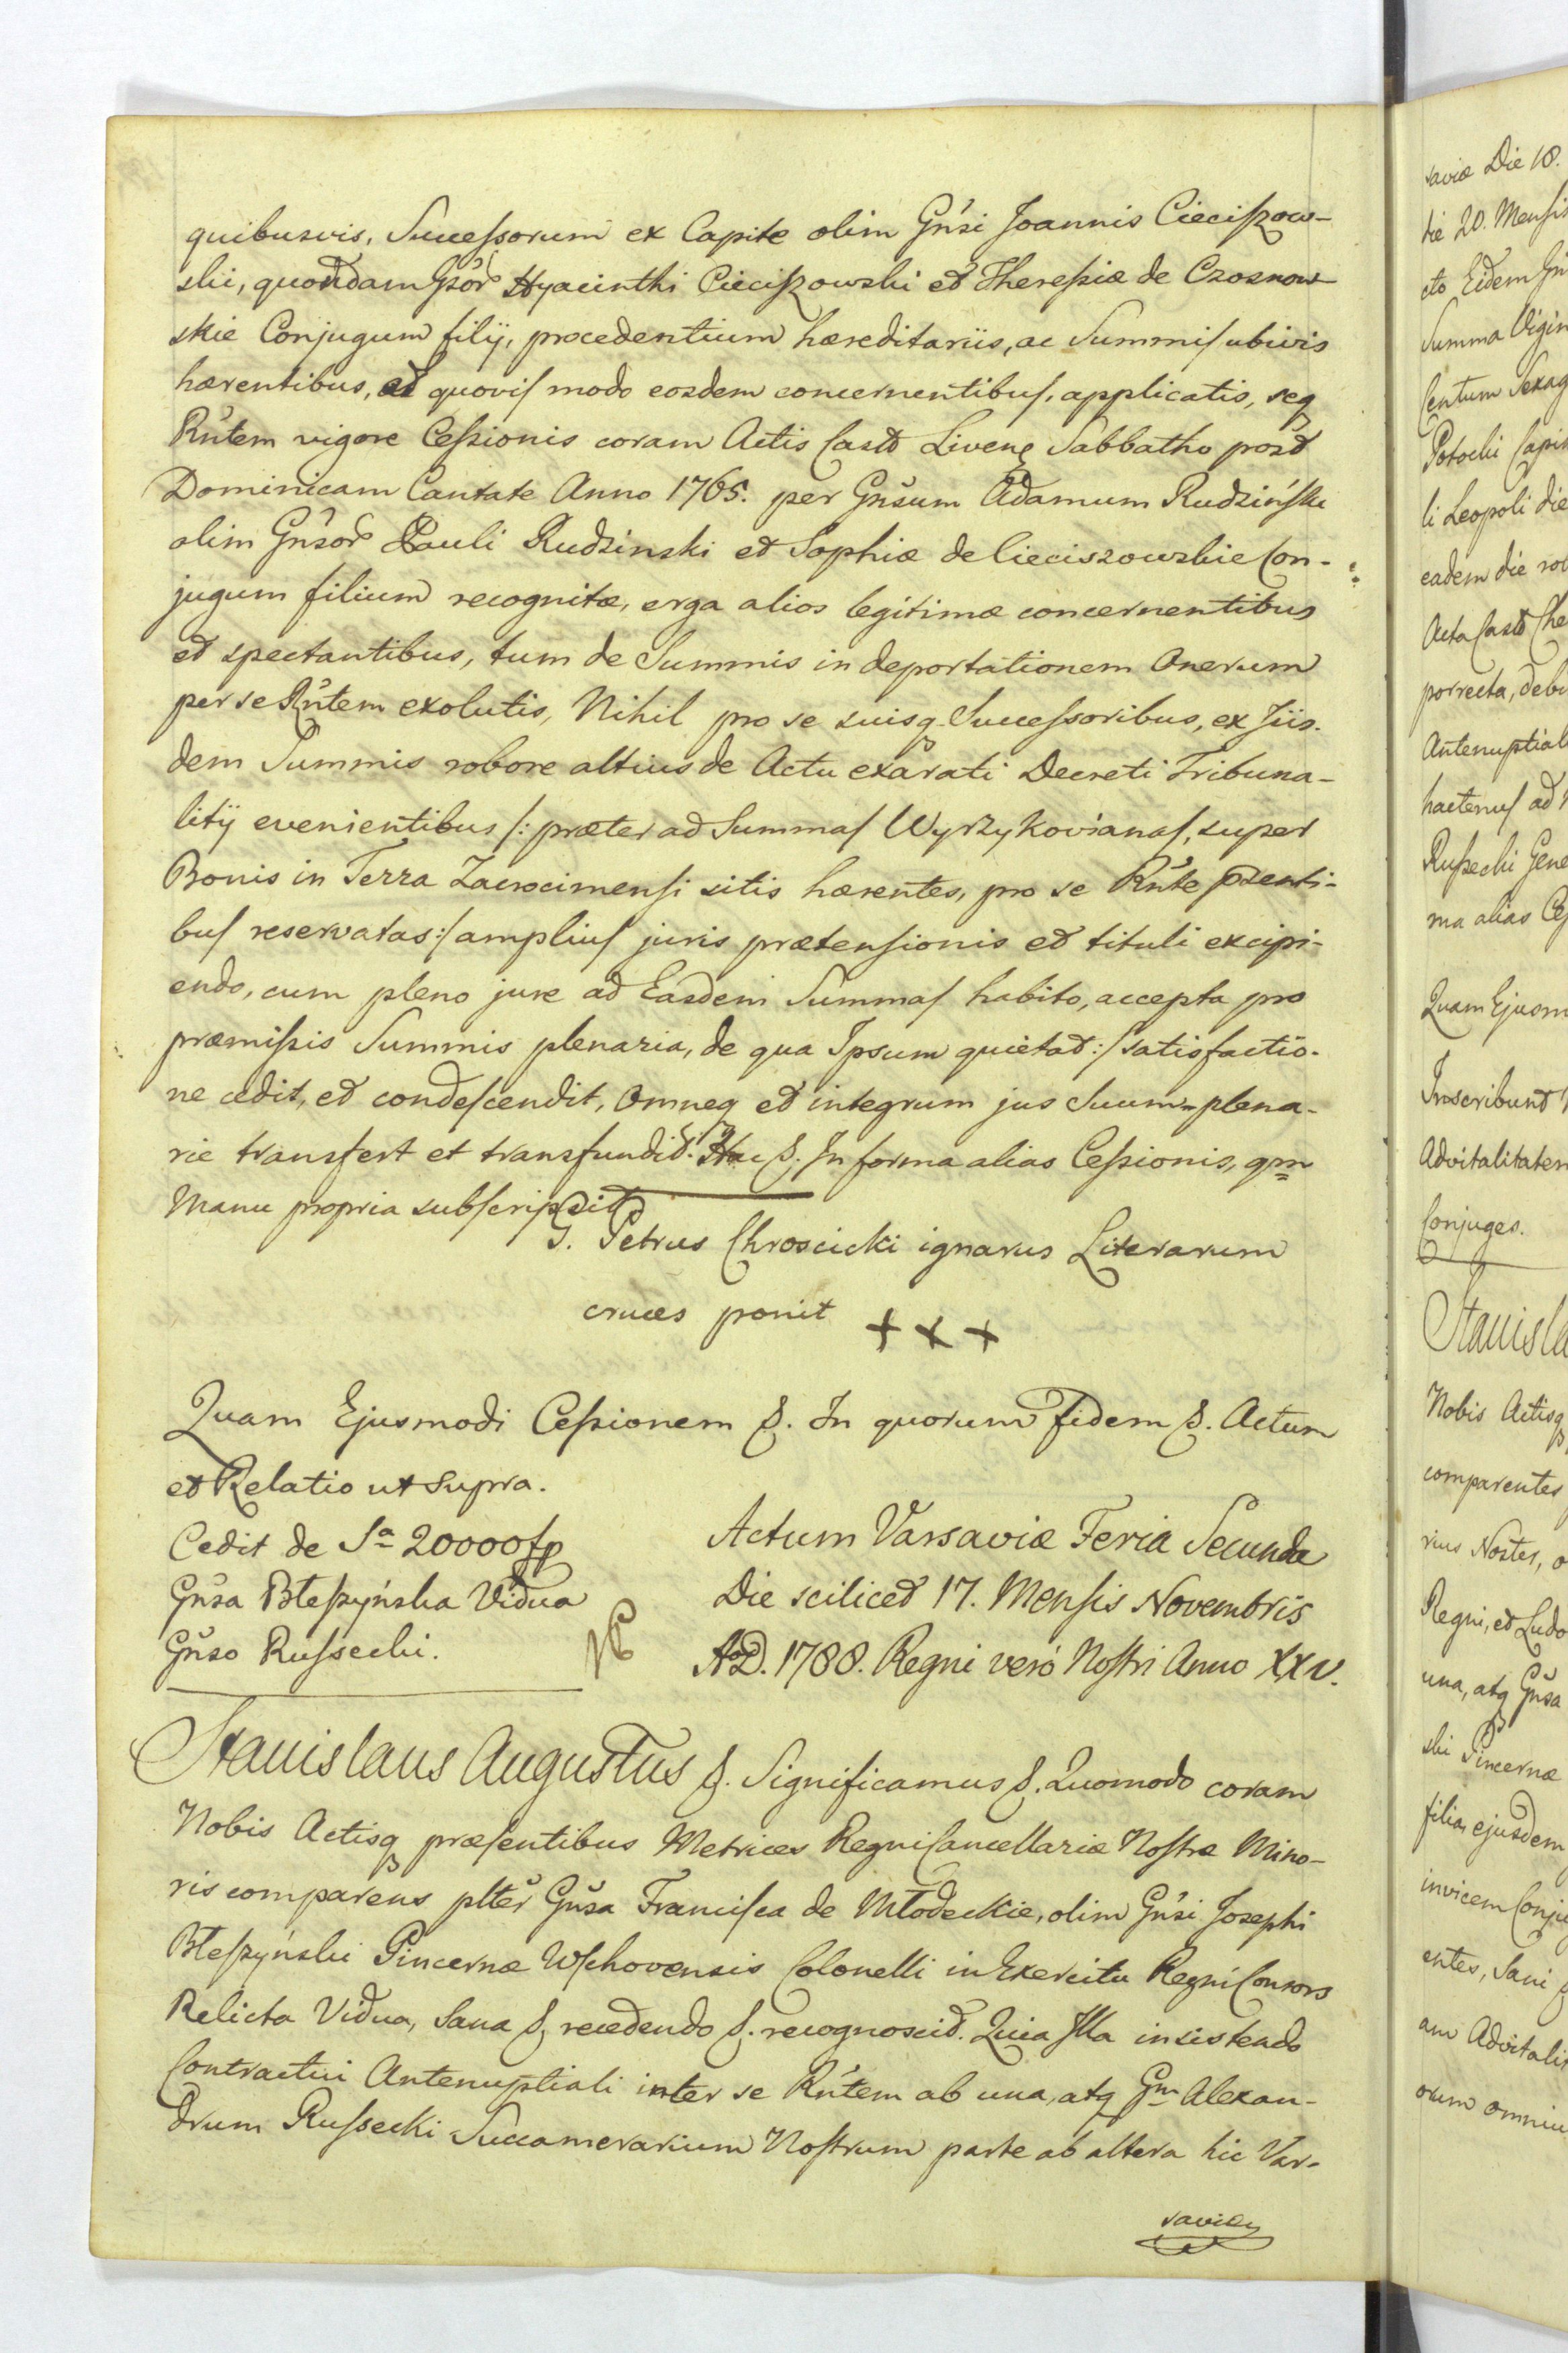 quibusvis, Successorum ex Capite olim Gnsi Joannis Cieciszow-
ski, quondam Gsor Hyacinthi Cieciszowski et Theressiæ de Czosnow-
skie Conjugum filij, procedentium hæreditariis, ac Summis ubivis
hærentibus, et quovis modo eosdem concernentibus, applicatis, seq
Rntem vigore Cessionis coram Actis Cast Livenq Sabbatho post
Dominicam Cantate Anno 1765. per Gnsum Adamum Rudzinski
olim Gnsor Pauli Rudzinski et Sophiæ de Cieciszowskie Con-
jugum filium recognitæ, erga alios legitimæ concernentibus
et spectantibus, tum de Summis in deportationem Onerum
per se Rntem exolutis, Nihil pro se suisq Successoribus, ex Iiis-
dem Summis robore altius de Actu exarati Decreti Tribuna-
litij evenientibus /: præter ad Summas Wyrzykovianas, super
Bonis in Terra Zacrocimensi sitis hærentes, pro se Rnte pzenti-
bus reservatas :/ amplius juris prætensionis et tituli excipi-
endo, cum pleno jure ad Easdem Summas habito, accepta pro
præmissis Summis plenaria, de qua Ipsum quietat :/ satisfactio-
ne cedit, et condescendit, Omneq et integrum jus Suum plena-
rie transfert et transfundit. Hac &. In forma alias Cessionis, qm
Manu propria subscripsit
G. Petrus Chroscicki ignarus Literarum
cruces ponit + + +
Quam Ejusmodi Cessionem &. In quorum fidem &. Actum
et Relatio ut supra.
Cedit de Sa 20000 fp
Gnsa Błeszyńska Vidua
Gnso Russecki.
Actum Varsaviæ Feria Secunda
Die scilicet 17. Mensis Novembris
AoD. 1788. Regni veró Nostri Anno XXV.
Stanislaus Augustus &. Significamus &. Quomodo coram
Nobis Actisq præsentibus Metrices Regni Cancellariæ Nostræ Mino-
ris comparens plter Gnsa Francisca de Młodeckie, olim Gnsi Josephi
Błeszyński Pincernæ Wschovensis Colonelli in Exercitu Regni Consors
Relicta Vidua, Sana & recedendo &. recognoscit. Quia Illa insistendo
Contractui Antenuptiali inter se Rntem ab una, atq Gm Alexan-
drum Russecki Succamerarium Nostrum parte ab altera hic Var-
saviæ
saviæ Die 18.
die 20. Mensis
cto Eidem Gn
Summa Vigin
Centum Sexag
Potocki Capit
li Leopoli die
eadem die
Acta Cast Che
porrecta, debi
Antenuptial
hactenus ad
Russecki Gene
ma alias Ces
Quam Ejusm
Inscribunt
Advitalitatem
Conjuges.
Stanisla
Nobis Actisq
comparentes
rius Noster, o
Regni, et Ludo
una, atq Gnsa
ski Pincernæ
filia, ejusdem
invicem Conju
entes, Sani &
am Advitalit
orum omniu